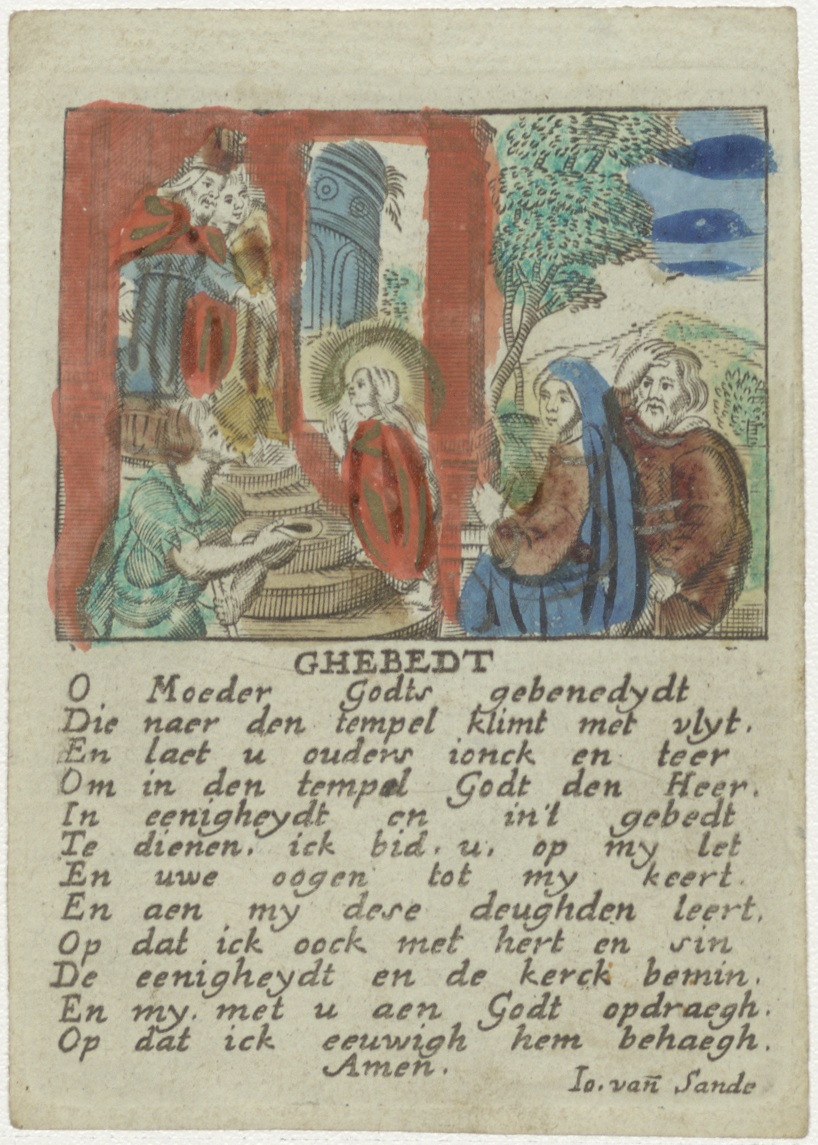 GHEBEDT
O Moeder Godts gebenedydt
Die naer den tempel klimt met vlyt.
En laet u ouders ionck en teer
Om in den tempel Godt den Heer.
In eenigheydt en in't gebedt
Te dienen. ick bid. u. op my let
En uwe oogen tot my keert.
En aen my dese deughden leert.
Op dat ick oock met hert en sin
De eenigheydt en de kerck bemin.
En my. met u aen Godt opdraegh.
Op dat ick eeuwigh hem behaegh.
Amen.
Io. van̄ Sande